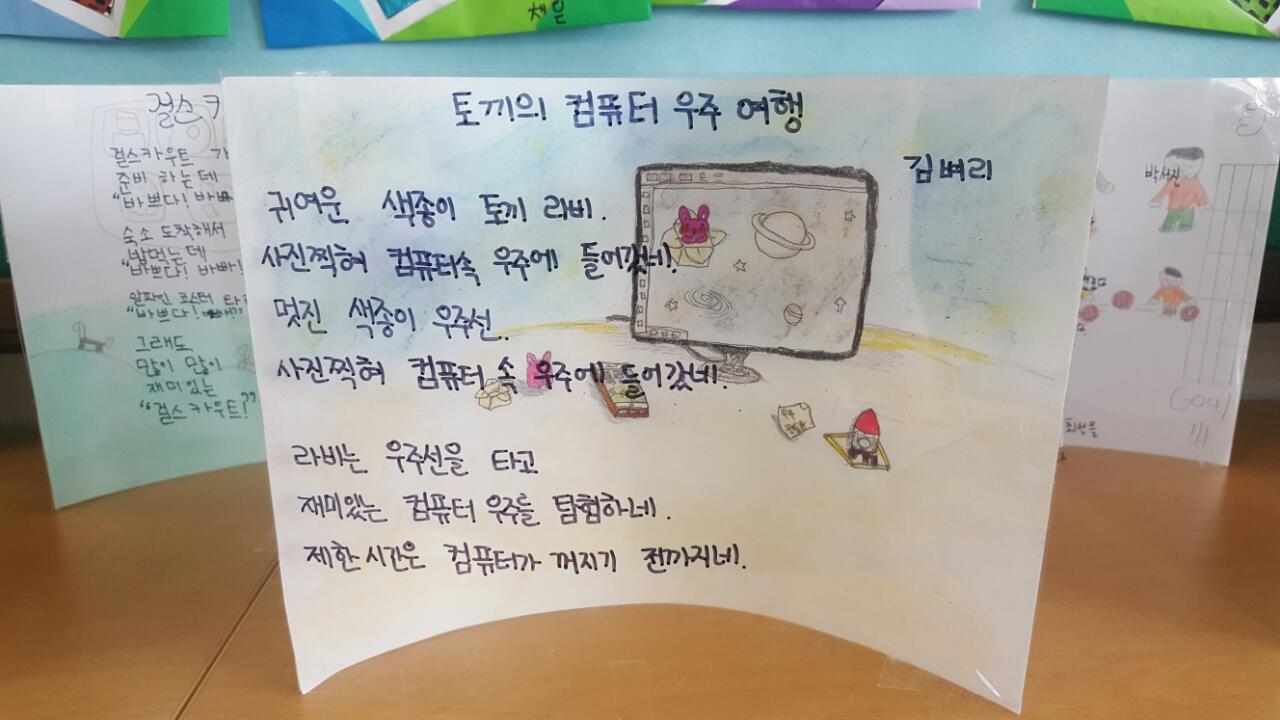 채은
토끼의 컴퓨터 우주 여행
김벼리
귀여운 색종이 토끼 라비.
사진찍혀 컴퓨터속 우주에 들어갔네!
멋진 색종이 우주선.
사진찍혀 컴퓨터 속 우주에 들어갔네.
라비는 우주선을 타고
재미있는 컴퓨터 우주를 탐험하네.
제한 시간은 컴퓨터가 꺼지기 전까지네.
걸스카
걸스카우트
준비 하는데
"바쁘다! 바빠
숙소 도착해서
밥먹는데
"바쁘다! 바빠!
알파인 코스터 타
"바쁘다! 바빠!"
그래도
많이 많이
재미있는
"걸스카우트!"
박서진
Goal
1/1